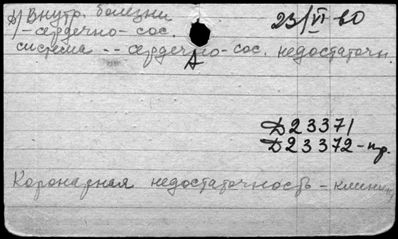 А) Внутр. болезни
23/VI 60
/-сердечно-сос.
система -- сердечно-сос. недостаточн.
А
Д23371
Д23372-пр.
Коронарная недостаточность - клиника